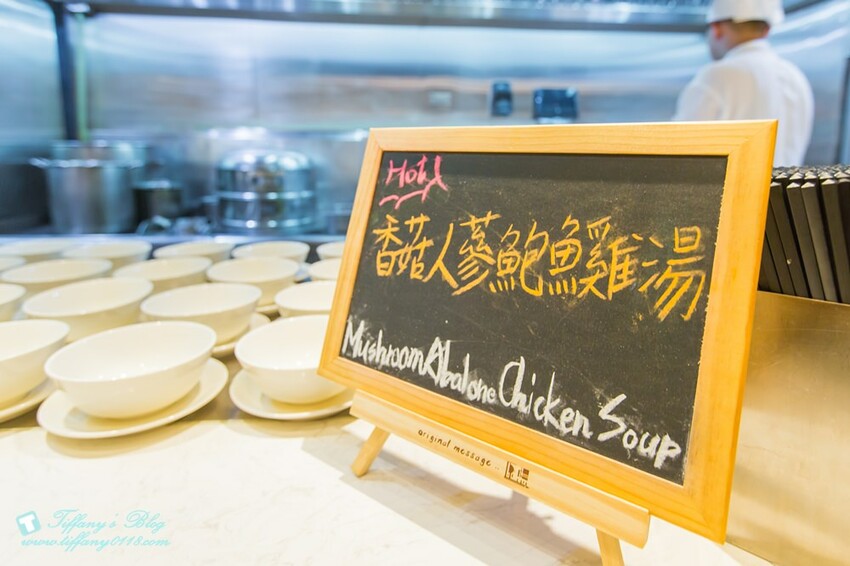 Hot!
香菇人蔘鮑魚雞湯
Mushroom Abalone Chicken Soup
original message :
Tiffany's Blog
www.tiffany0118.com